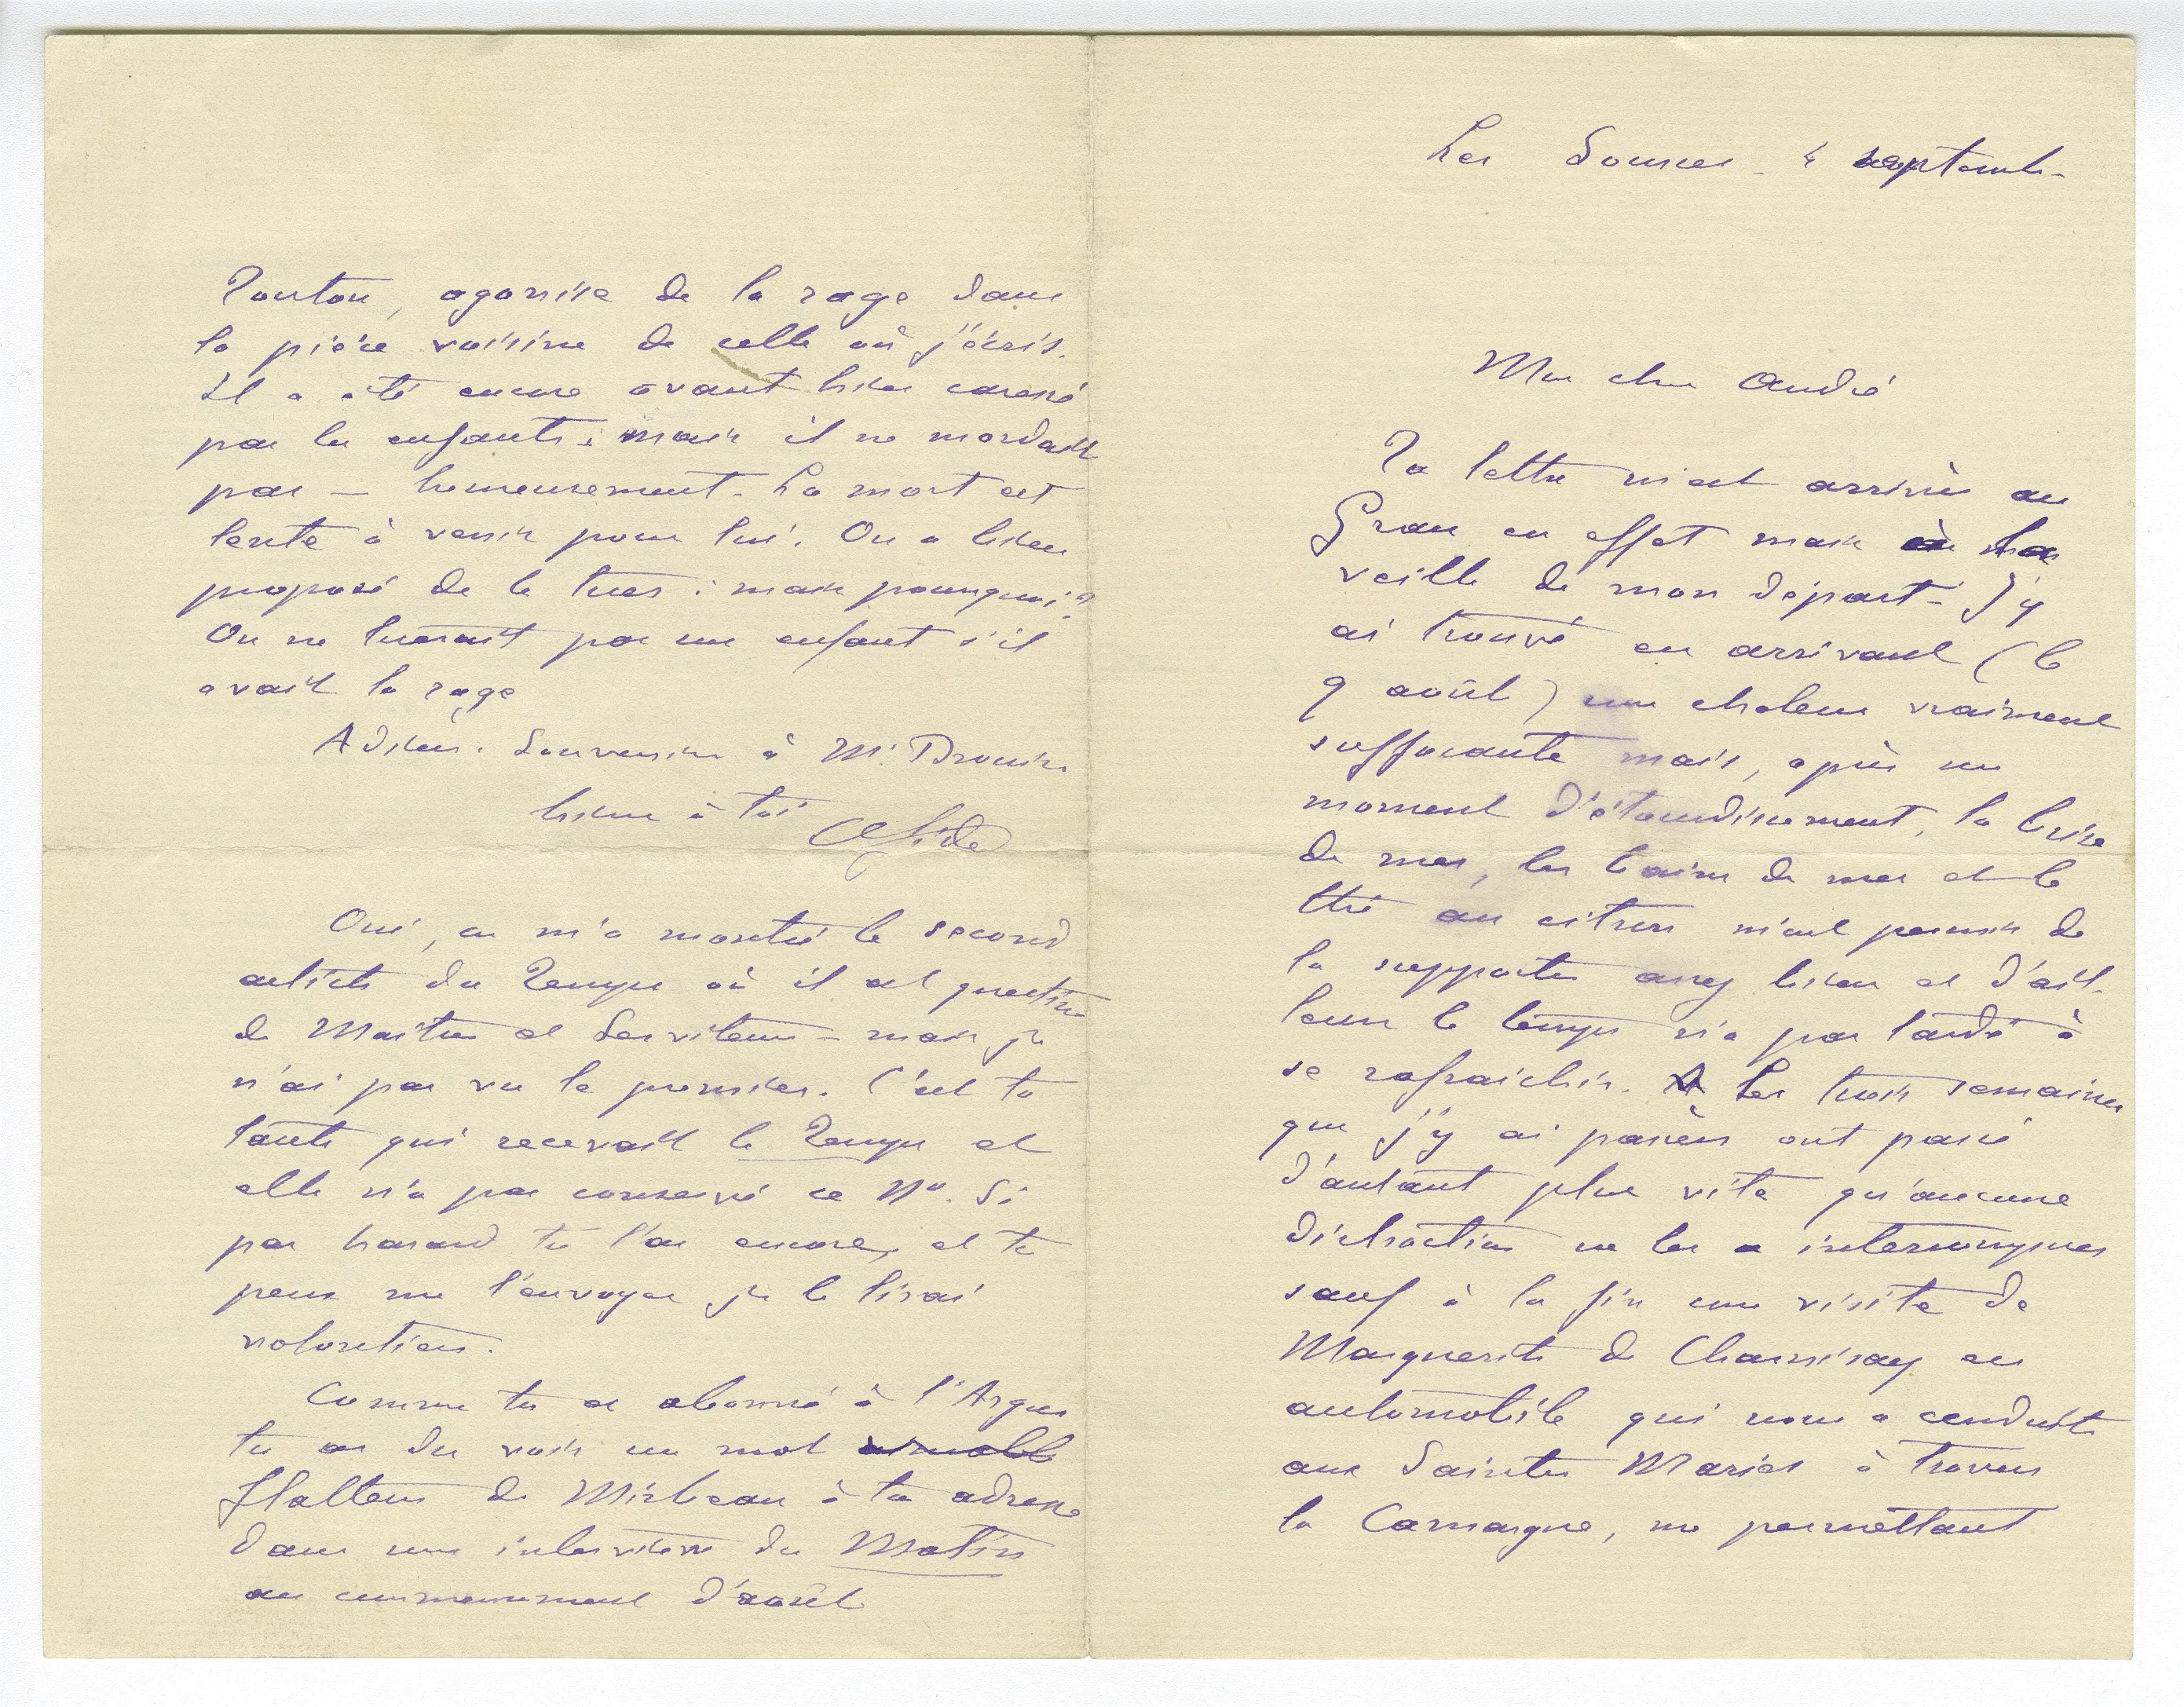 Les Sources - 4 septemb-
Mon cher André
Ta lettre m'est arrivée au
Grau en effet mais la
veille de mon départ - J'y
ai trouvé en arrivant (le
9 août) une chaleur vraiment
suffocante mais, après un
moment d'étourdissement, la brise
de mer, les bains de mer et le
thé au citron m'ont permis de
la supporter assez bien et d'ail-
leurs le temps n'a pas tardé à
se rafraichir. Les trois semaines
que j'y ai passées ont passé
d'autant plus vite qu'aucune
distraction ne les a interrompues
sauf à la fin une visite de
Marguerite de Charnisay en
automobile qui nous a conduits
aux Saintes Maries à travers
la Camargue, me permettant
Touton, agonise de la rage dans
la pièce voisine de celle où j'écris.
Il a été encore avant hier caressé
par les enfants : mais il ne mordait
pas — heureusement. La mort est
lente à venir pour lui. On a bien
proposé de le tuer : mais pourquoi ?
On ne tuerait pas un enfant s'il
avait la rage
Adieu. Souvenirs à Mr. Drouin
bien à toi ChGide
Oui, on m'a montré le second
article du Temps où il est question
de Maitres et Serviteurs - mais je
n'ai pas vu le premier. C'est ta
tante qui recevait le Temps et
elle n'a pas conservé ce No. Si
par hasard tu l'as encore, et tu
peux me l'envoyer je le lirai
volontiers.
Comme tu es abonné à l'Argus
tu as du voir un mot aimable
flatteur de Mirbeau à ton adresse
dans une interview du Matin
au commencement d'août